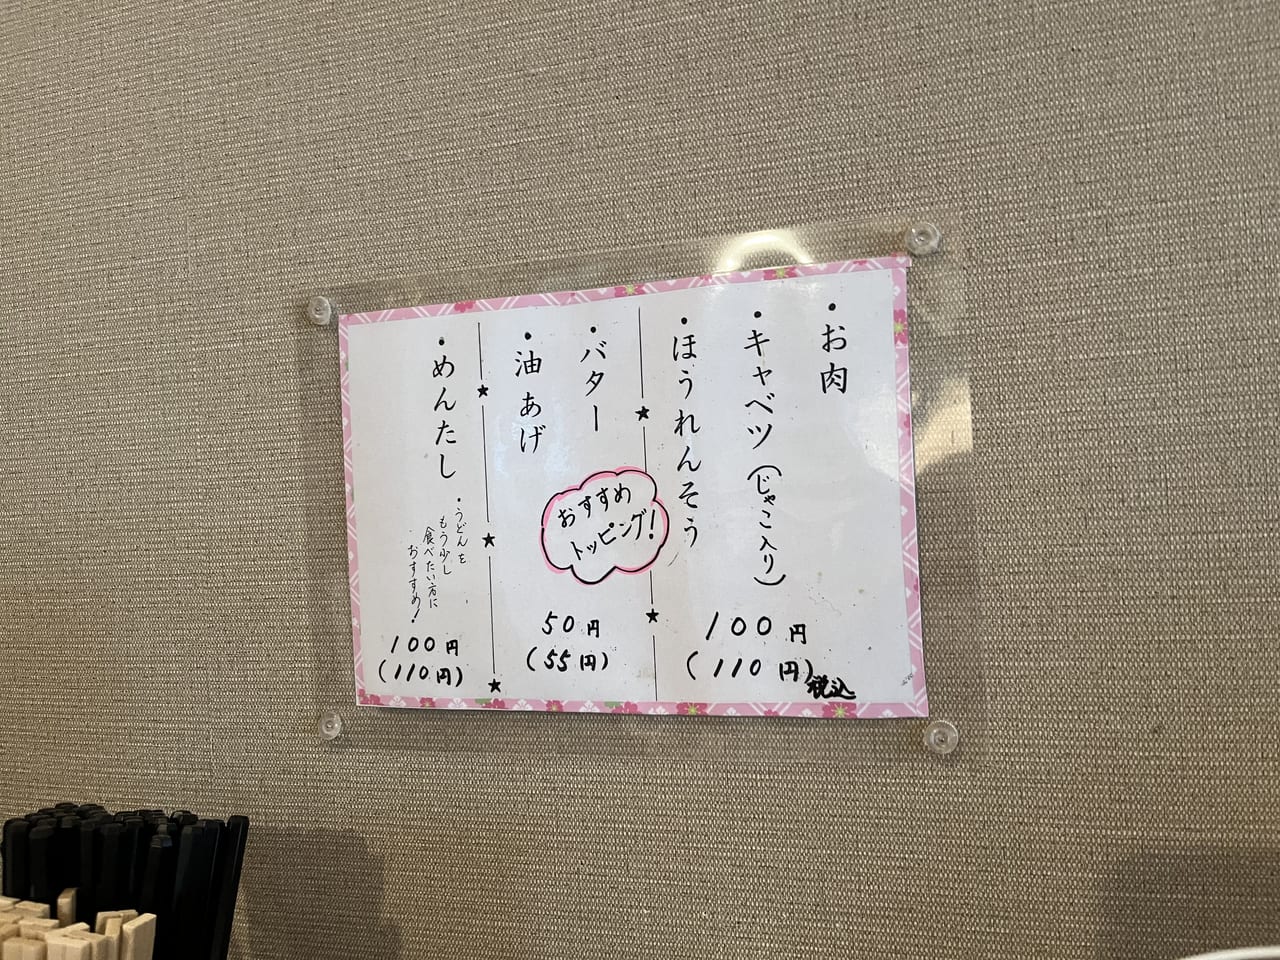 ・お肉
・キャベツ(じゃこ入り)
・ほうれんそう
100円
(110円)税込
・バター
・油あげ
おすすめ
トッピング!
50円
(55円)
・めんたし
・うどんを
もう少し
食べたい方に
おすすめ!
100円
(110円)